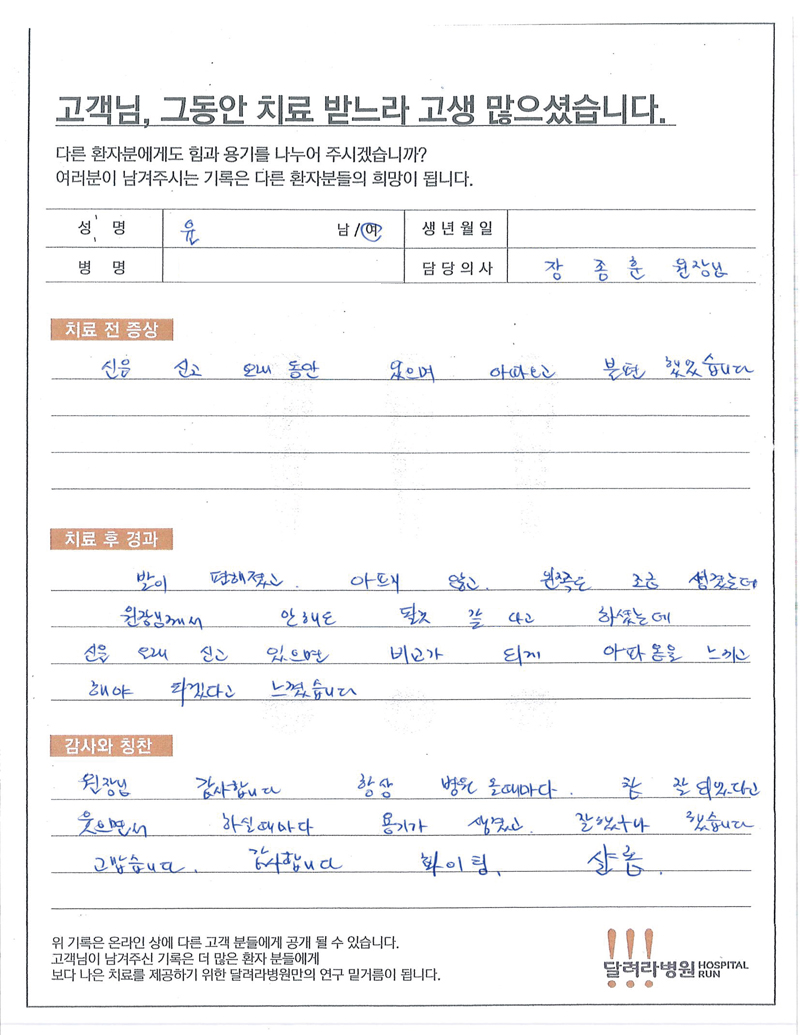 고객님, 그동안 치료 받느라 고생 많으셨습니다.
다른 환자분에게도 힘과 용기를 나누어 주시겠습니까?
여러분이 남겨주시는 기록은 다른 환자분들의 희망이 됩니다.
성 명 윤 남 / 여 생년월일
병 명 담당의사 장 종 훈 원장님
치료 전 증상
신을 신고 오래 동안 있으며 아파오고 불편 했었습니다
치료 후 경과
발이 편해졌고. 아프지 않고. 왼쪽도 조금 생겼는데
원장님께서 안해도 될것 같다고 하셨는데
신을 오래 신고 있으면 비교가 되게 아파옴을 느끼고
해야 되겠다고 느꼈습니다
감사와 칭찬
원장님 감사합니다 항상 병원 올때마다. 참 잘 되었다고
웃으면서 하실때마다 용기가 생겼고. 잘했구나 했습니다
고맙습니다. 감사합니다 화이팅. 샬롬.
위 기록은 온라인 상에 다른 고객 분들에게 공개 될 수 있습니다.
고객님이 남겨주신 기록은 더 많은 환자 분들에게
보다 나은 치료를 제공하기 위한 달려라병원만의 연구 밑거름이 됩니다.
달려라병원 HOSPITAL RUN